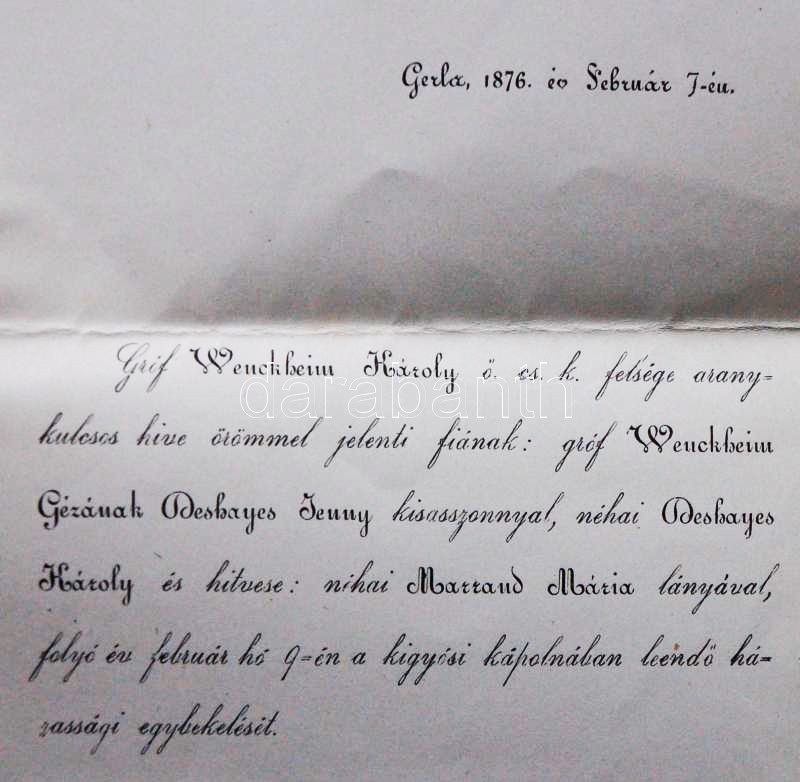 Gerla, 1876. év Február 7-én.
Gróf Wenckheim Károly ő. cs. k. felsége arany=
darabanth
kulcsos hive örömmel jelenti fiának: gróf Wenckheim
Gézának Deshayes Jenny kisasszonnyal, néhai Deshayes
Károly és hitvese: néhai Marraud Mária lányával,
folyó év február hó 9=én a kigyósi kápolnában leendő há=
zassági egybekelését.